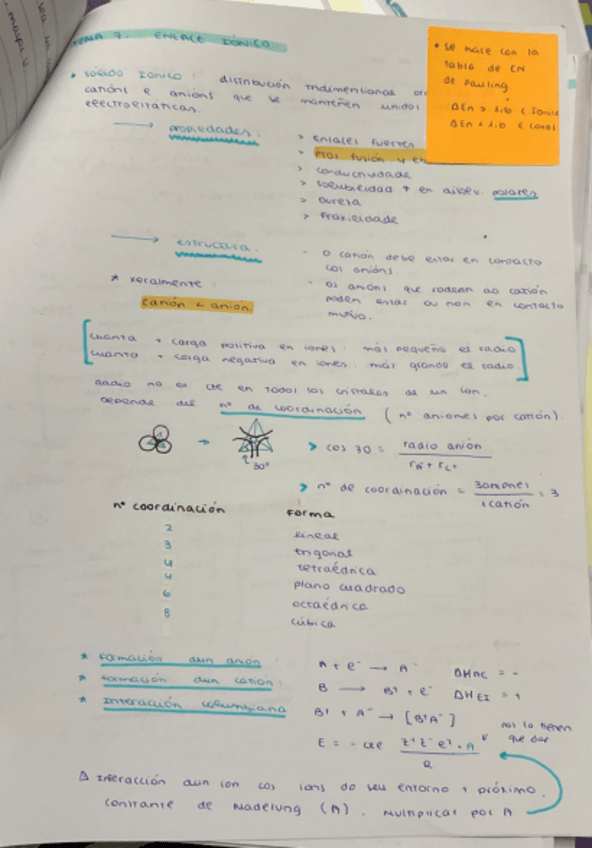 TEMA 7. ENLACE IÓNICO
* SÓLIDO IÓNICO : distribución tridimensional
catións e anións que se manteñen unidos
electrostáticas.
→ propiedades :
> enlaces fuertes
> ptos fusión y
> conductividade
> solubilidad + en disolv. polares
> dureza
> fraxilidade
* se hace con la
tabla de EN
de Pauling
ΔEn > 1.6
ΔEn < 1.6
→ estructura .
- O catión debe estar en contacto
cos anións
- os anións que rodean ao catión
poden estar ou non en contacto
mutuo.
* xeralmente :
catión < anión
cuanta + carga positiva en iones : más pequeño el radio
cuanta + carga negativa en iones : más grande el radio
Radio no es cte en todos los cristales de un ion.
Depende del nº de coordinación ( nº aniones por catión).
30°
> cos 30 = radio anión
> nº de coordinación = 3 aniones / 1 catión = 3
nº coordinación Forma
2 lineal
3 trigonal
4 tetraédrica
4 plano cuadrado
6 octaédrica
8 cúbica
* Formación dun anión : A + e⁻ → A⁻ ΔHAE = -
* Formación dun catión : B → B⁺ + e⁻ ΔH EI = +
* Interacción coulombiana B⁺ + A⁻ → [B⁺A⁻]
nos lo tienen
que dar
E = - cte Z⁺Z⁻e² · A / R
Δ Interacción dun ion cos ions do seu entorno + próximo.
constante de Madelung (A). Multiplicar por A